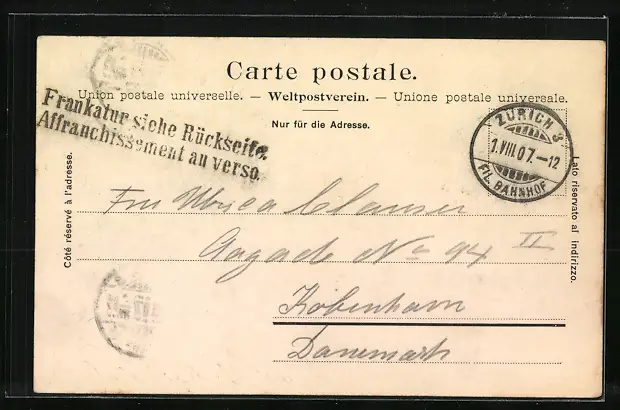 Carte postale.
Union postale universelle. — Weltpostverein. — Unione postale universale.
Nur für die Adresse.
Frankatur siehe Rückseite.
Affranchissement au verso.
ZÜRICH 3
1.VIII.07.–12
FIL. BAHNHOF
Côté réservé à l'adresse.
Lato riservato all indirizzo.
Aagade No 94 II
Köbenhavn
Danemark